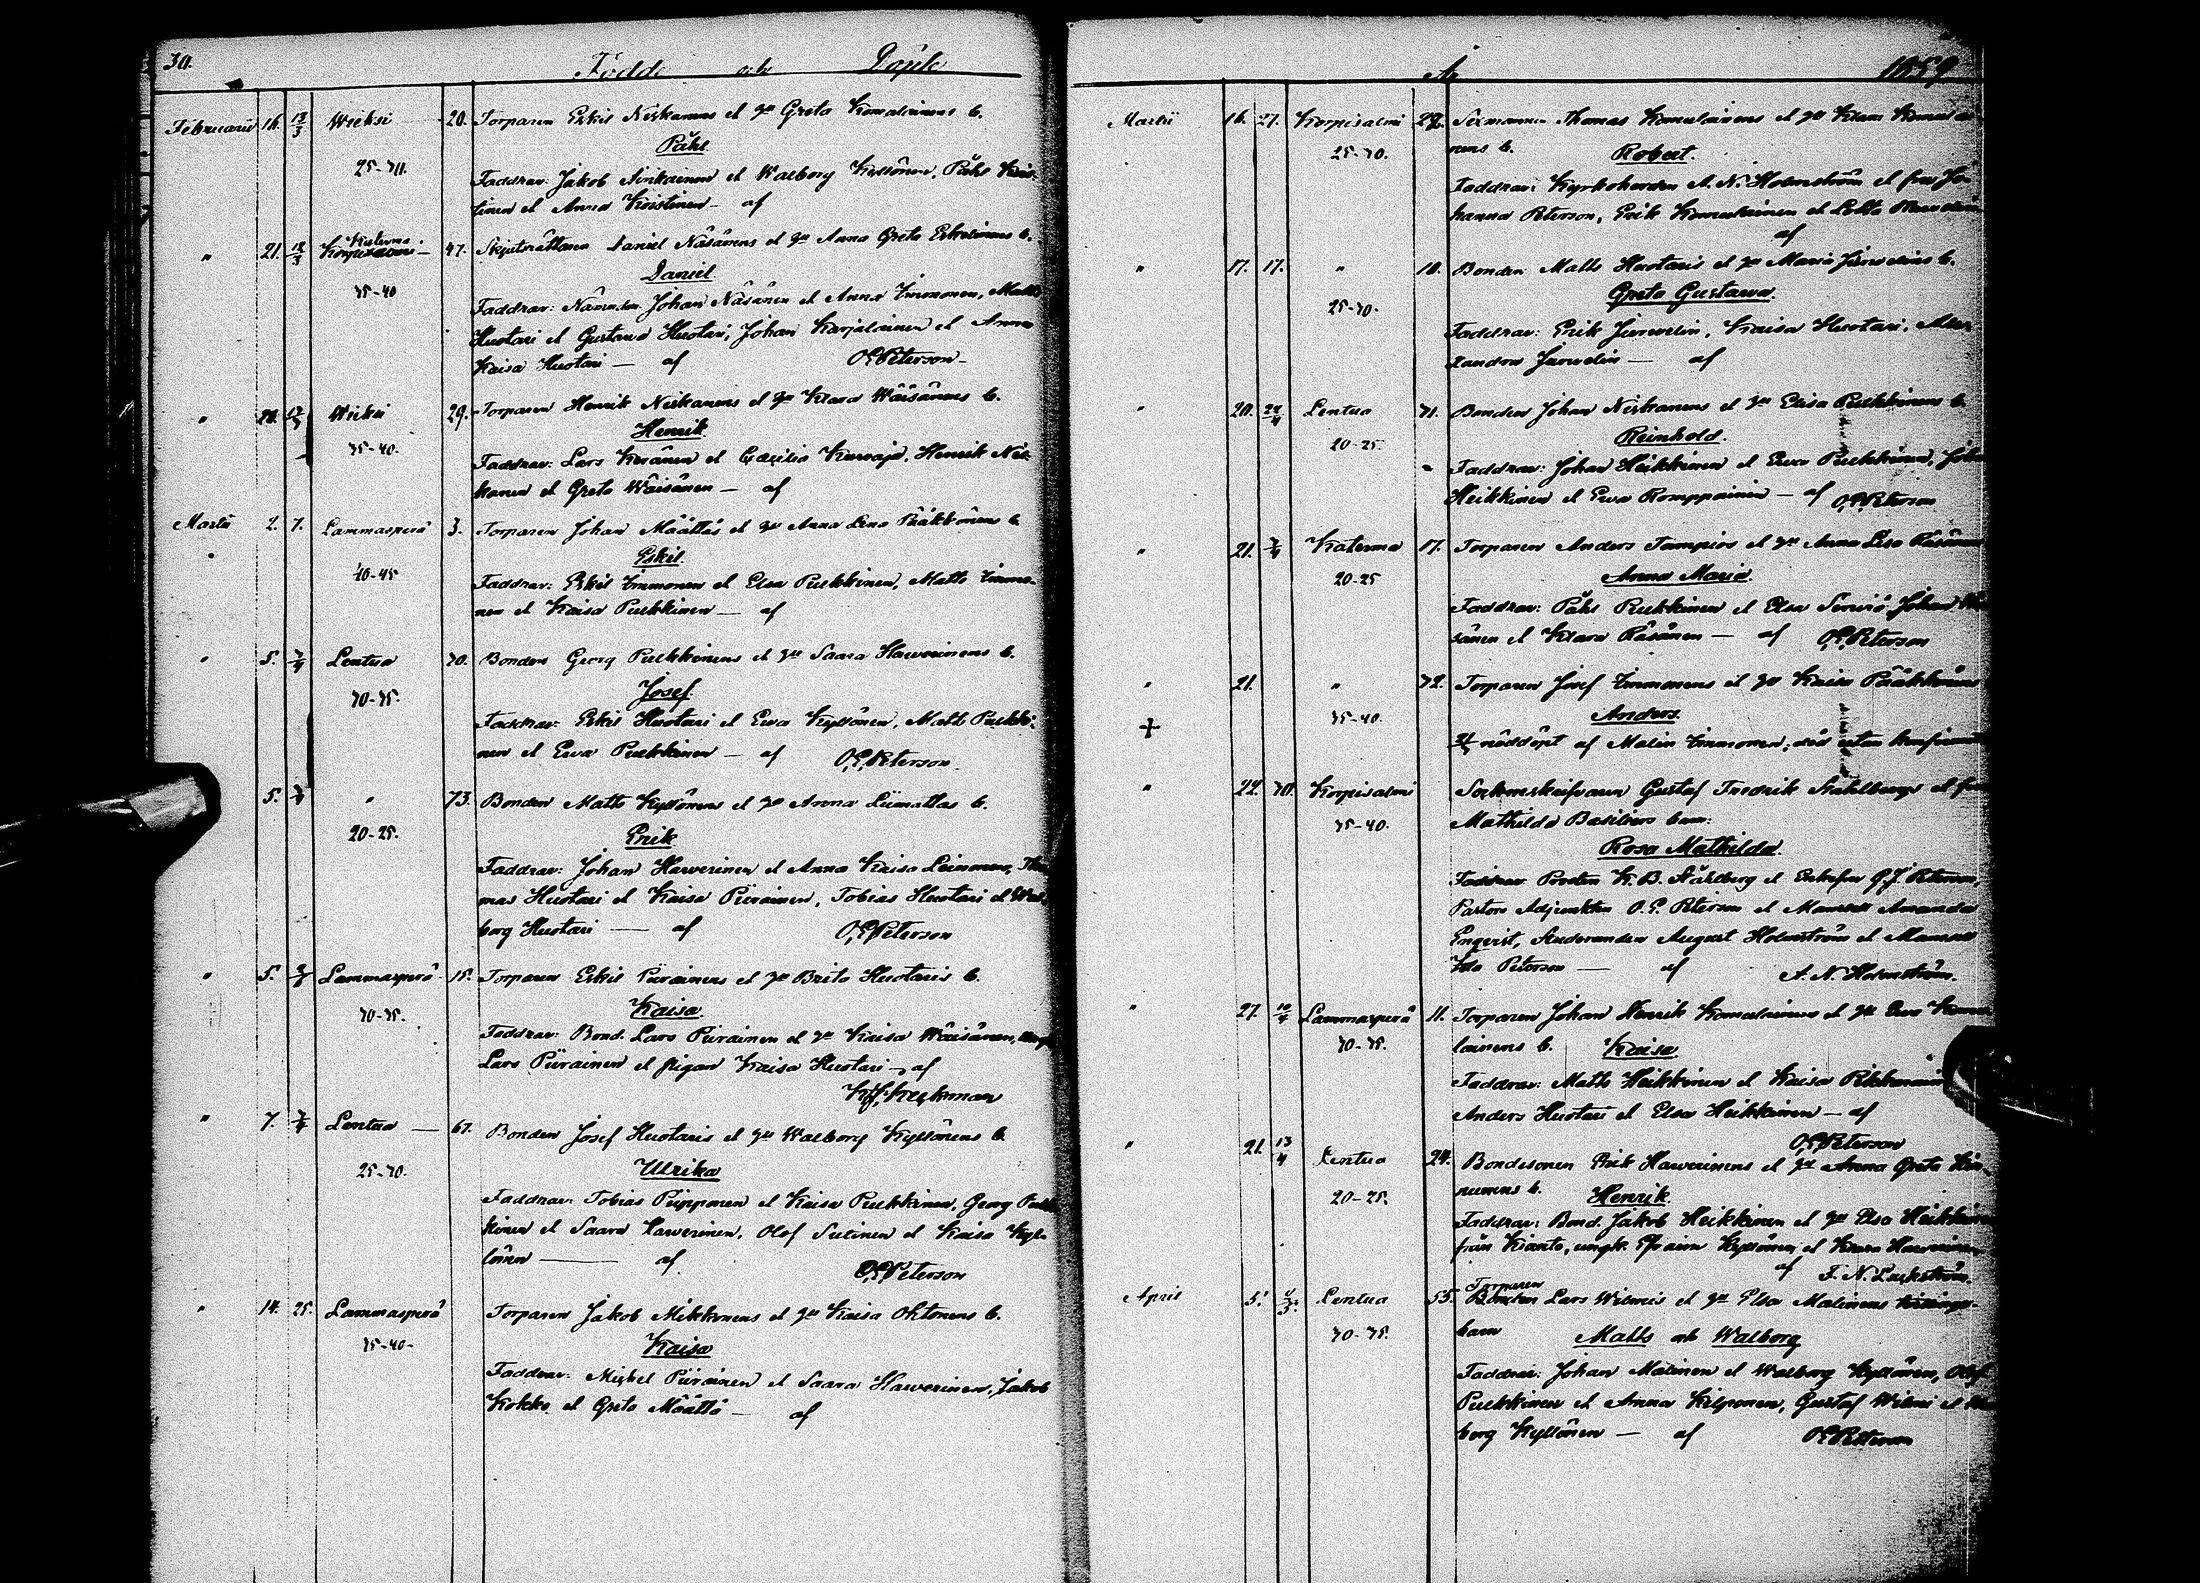 30.
Födde och Döpte
Februarii 16. 13/3 Wieksi 20. Torparen Eskil Niskanens et hu Greta Komulainens b.
Påhl.
25-30.
Faddrar: Jakob Ninkainen et Walborg Kyllönen, Påhl Kois-
tinen et Anna Koistinen — af
" 21. 13/3 Katerma 47. Skjutsrättaren Daniel Näsänens et hu Anna Greta Eskelinens b.
Daniel.
35-40
Faddrar: Nämndem. Johan Näsänen et Anna Immonen, Matts
Huotari et Gustava Huotari, Johan Karjalainen et Anna
Kaisa Huotari — af O.E. Peterson
" Wieksi 29. Torparen Henrik Niskanens et hu Klara Wäisänens b.
Henrik.
35-40.
Faddrar: Lars Kesänen et Cæcilia Karvaja, Henrik Nis-
kanen et Greta Wäisänen — af
Martii 2. 7. Lammasperä 3. Torparen Johan Määttäs et hu Anna Lena Pääkkönens b.
Eskil.
40-45
Faddrar: Eskil Immonen et Elsa Pulkkinen, Matts Immo-
nen et Kaisa Pulkkinen — af
" 5. 3/4 Lentua 30. Bonden Georg Pulkkinens et hu Saara Hawerinens b.
Josef.
30-35.
Faddrar: Eskil Huotari et Ewa Kyllönen, Matts Pulkki-
nen et Ewa Pulkkinen — af O.E. Peterson.
5. 3/4 " 73. Bonden Matts Kyllönens et hu Anna Liimattas b.
Erik
20-25.
Faddrar: Johan Hawerinen et Anna Kaisa Leinonen, Tho-
mas Huotari et Kaisa Piirainen, Tobias Huotari et Wal-
borg Huotari — af O.E. Peterson
" 5. Lammasperä 15. Torparen Eskil Piirainens et hu Brita Huotaris b.
Kaisa.
30-35.
Faddrar: Bond. Lars Piirainen et hu Kaisa Wäisänen,
Lars Piirainen et pigan Kaisa Huotari — af
" 7. 3/4 Lentua — 67. Bonden Josef Huotaris et hu Walborg Kyllönens b.
Ulrika
25-30.
Faddrar: Tobias Piipponen et Kaisa Pulkkinen, Georg Pulk-
kinen et Saara Hawerinen, Olof Sutinen et Kaisa Kyl-
lönen — af O.E. Peterson
" 14. 25. Lammasperä Torparen Jakob Mikkonens et hu Kaisa Oktonens b.
Kaisa
35-40-
Faddrar: Michel Piirainen et Saara Hawerinen, Jakob
Kokko et Greta Määttä — af
År 1859
Martii 16. 27. Korpisalmi Sexmannen Thomas Komulainens et hu Klara Komulai-
nens b. Robert.
25-30.
Faddrar: Kyrkoherden A. N. Holmström et fru Jo-
hanna Peterson, Erik Komulainen et Lotta
af
" 17. 17. " 10. Bonden Matts Huotaris et hu Maria Järvelins b.
Greta Gustava.
25-30.
Faddrar: Erik Jerwelin, Kaisa Huotari, Alex-
andra Jarvelin — af
" 20. 22/4 Lentua 31. Bonden Johan Niskanens et hu Elisa Pulkkinens b.
Reinhold.
20-25.
Faddrar: Johan Heikkinen et Ewa Pulkkinen, Johan
Heikkinen et Ewa Romppainen — af O.E. Peterson
" 21. 3/4 Katerma 17. Torparen Anders Tampios et hu Anna Lisa Räsänens
Anna Maria.
20-25
Faddrar: Påhl Pulkkinen et Elsa Serviö, Johan
sänen et Klara Räsänen — af O.E. Peterson
" 21. " 32. Torparen Josef Immonens et hu Kaisa Pääkkönens
Anders.
35-40.
+ nöddöpt af Malin Immonen, dös utan
" 22. 30. Korpisalmi Sockneskrifvaren Gustaf Fredrik Ståhlbergs et fru
Mathilda Basiliers barn:
35-40.
Rosa Mathilda.
Faddrar Prosten K. B. Ståhlberg et Enkefru G. J. Peterson,
Pastors Adjunkten O. E. Peterson et Mamsell Amanda
Enqvist, Studeranden August Holmström et Mamsell
Ida Peterson — af A. N. Holmström.
" 27. 10/4 Lammasperä 11. Torparen Johan Henrik Komulainens et hu Ewa Komu-
lainens b. Kaisa
30-35.
Faddrar: Matts Heikkinen et Kaisa
Anders Huotari et Elsa Heikkinen — af
O.E. Peterson
" 21. 13/4 Lentua 24. Bondesonen Erik Hawerinens et hu Anna Greta Kin-
nunens b. Henrik.
20-25.
Faddrar: Bond. Jakob Heikkinen et hu Elsa Heikkinen
från Kianto, ungk. Efraim Kyllönen et Klara Hawerinen
af F. N. Lackström.
April 5. Lentua 53. Torparen
Bonden Lars Wilmis et hu Elsa Malinens tvillinge-
barn Matts och Walborg
30-35.
Faddrar: Johan Malinen et Walborg Kyllönen, Olof
Pulkkinen et Anna Kilponen, Gustaf Wilmi et Wal-
borg Kyllönen — af O.E. Peterson